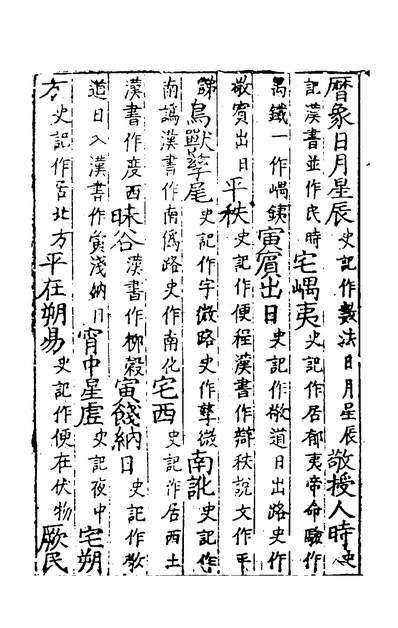 曆象日月星辰史記作數法日月星辰敬授人時史
記漢書並作民時宅嵎夷史記作居郁夷帝命驗作
禺鐵一作嵎銕寅賓出日史記作敬道日出路史作
敬賓出日平秩史記作便程漢書作辯秩說文作平
䬢鳥獸孳尾史記作字微路史作孳微南訛史記作
南譌漢書作南僞路史作南化宅西史記作居西土
漢書作度西昧谷漢書作柳穀寅餞納日史記作敬
道日入漢書作寅淺納日宵中星虛史記夜中宅朔
方史記作居北方平在朔易史記作便在伏物厥民